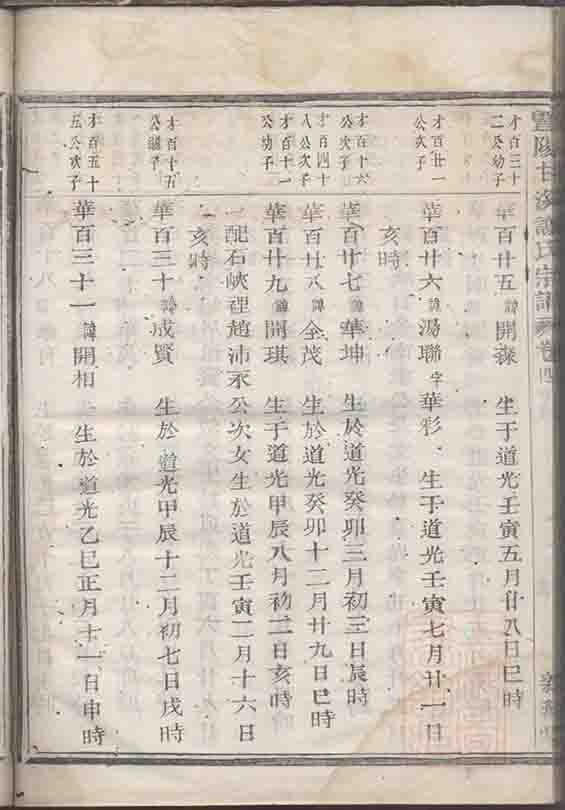 暨陽
氏宗譜
卷四
才百三十
二公幼子
華百廿五諱開森 生于道光壬寅五月廿八日巳時
才百廿一
公次子
華百廿六諱湯聯字華彩 生于道光壬寅七月廿一日
亥時
才百十六
公次子
華百廿七諱華坤 生於道光癸卯三月初三日辰時
才百四十
八公次子
華百廿八諱全茂 生於道光癸卯十二月廿九日巳時
才百十一
公幼子
華百廿九諱開琪 生于道光甲辰八月初二日亥時
一配石峽裡趙沛 公次女生於道光壬寅二月十六日
亥時
才百十五
公 子
華百三十諱成賢 生於道光甲辰十二月初七日戌時
才百五十
五公次子
華百三十一諱開相 生於道光乙巳正月十一日申時